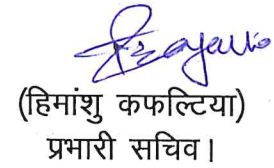 (हिमांशु कफल्टिया)
प्रभारी सचिव।